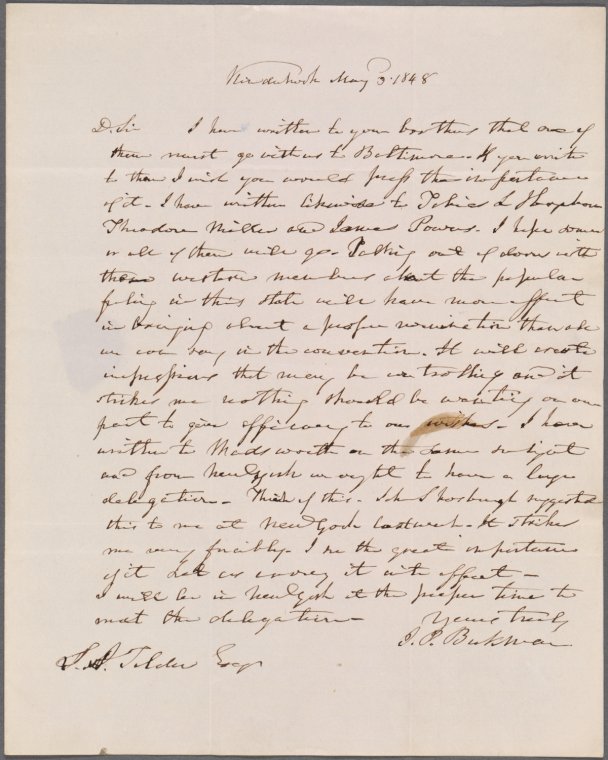 Kinderhook May 3. 1848
D. Sir I have written to your brothers that one of
them must go with us to Baltimore. If you write
to them I wish you would press the importance
of it. I have written likewise to
Theodore Miller and James Powers. I hope some
or all of them will go. Talking out of doors with
these western members about the popular
feeling in this state will have more effect
in bringing about a proper nomination than all
we can say in the convention. It will create
impressions that may be controlling and it
strikes me nothing should be wanting on our
part to give efficiency to our wishes. I have
written to Wadsworth on the same subject
and from New York we ought to have a large
delegation. Think of this. suggested
this to me at New York last week. It strikes
me very forcibly. I see the great importance
of it Let us carry it into effect —
I will be in New York at the proper time to
meet the delegation —
Yours truly
J. P. Beekman
S. J. Tilden Esqr